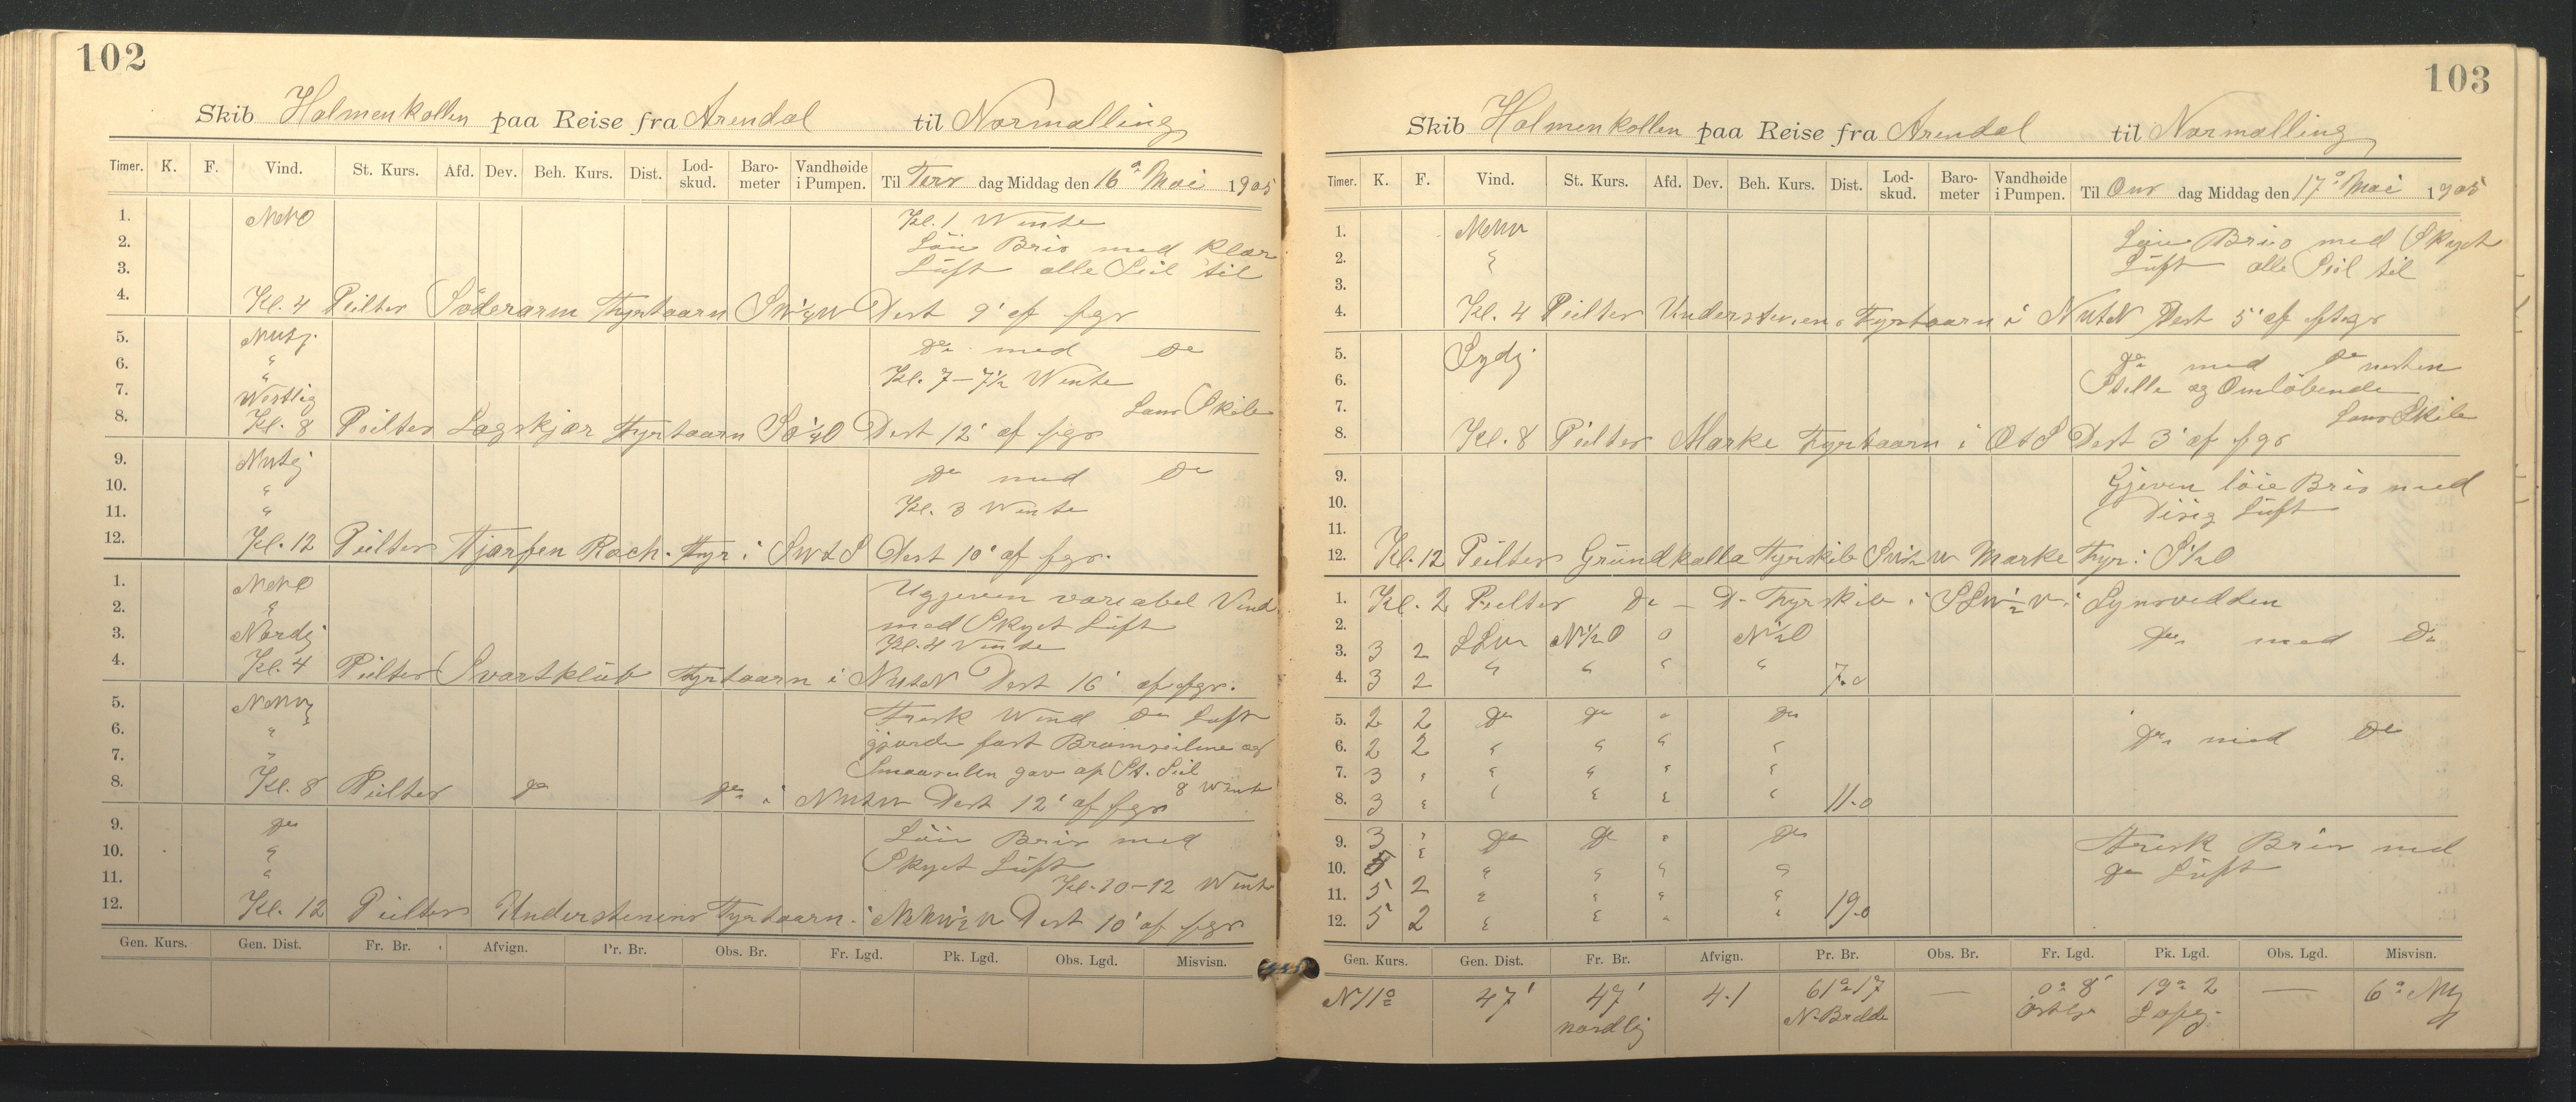 102
Skib Holmenkollen paa Reise fra Arendal til Normalling
Timer. K. F. Vind. St. Kurs. Afd. Dev. Beh. Kurs. Dist. Lod-skud. Baro-meter Vandhøide i Pumpen. Til Tirs dag Middag den 16de Mai 1905
1. NNO Kl. 1 Wente
2. Løie Bris med klar
3. Lüft alle Seil til
4. Kl. 4 Peilter Söderarm Fyrtaarn SW¼W Dist 9' af fgs
5. Nutj. do med do
6. " Kl. 7 - 7½ Wente
7. Westlig Lens Skib
8. Kl. 8 Peilter Lagskjær Fyrtaarn SO¼O Dist 12' af fgs
9. do med do
10. " Kl. 3 Wente
11. "
12. Kl. 12 Peilter Tjærfen Fyr i SWtS Dist 10' af fgs.
1. NNO Ugjeven variabel Vind
2. " med Skyet Lüft
3. Nordj Kl. 4 Vente
4. Kl. 4 Peilter Svartklüb Fyrtaarn i NWtN Dist 16' af fgs.
5. Frisk Wind do Luft
6. " gjorde fast Bramseilene og
7. " Smaaseilen gav af St. Seil
8. Kl. 8 Peilter do do i NWtW Dist 12' af fgs 8 Wente
9. do Løie Bris med
10. " Skyet Lüft
11. " Kl. 10-12 Wente
12. Kl. 12 Peilter Understenens Fyrtaarn i NNW½W Dist 10' af fgs
Gen. Kurs. Gen. Dist. Fr. Br. Afvign. Pr. Br. Obs. Br. Fr. Lgd. Pk. Lgd. Obs. Lgd. Misvisn.
103
Skib Holmenkollen paa Reise fra Arendal til Normalling
Timer. K. F. Vind. St. Kurs. Afd. Dev. Beh. Kurs. Dist. Lod-skud. Baro-meter Vandhøide i Pumpen. Til Ons dag Middag den 17de Mai 1905
1. NNW Løie Bris med Skyet
2. " Lüft alle Seil til
3.
4. Kl. 4 Peilter Understenens Fyrtaarn i NWtN Dist 5' af
5. Sydj do med do nesten
6. Stille og Omløbende
7. Lens Skib
8. Kl. 8 Peilter Marke Fyrtaarn i OtS Dist 3' af fgs
9. Gjeven løie Bris med
10. Disig Lüft
11.
12. Kl. 12 Peilter Gründkalla Fyrskib SW½W Marke Fyr i S½O
1. Kl. 2 Peilter do - D. Fyrskib i SSW½W
2. do med do
3. 3 2 SSW N½O 0 N½O
4. 3 2 " " " " 7.0
5. 2 2 do do " do
6. 2 2 " " " " do med do
7. 3 " " " " "
8. 3 " " " " " 11.0
9. 3 " do do " do Frisk Bris med
10. 5 " " " " " do Lüft
11. 5 2 " " " "
12. 5 2 " " " " 19.0
Gen. Kurs. Gen. Dist. Fr. Br. Afvign. Pr. Br. Obs. Br. Fr. Lgd. Pk. Lgd. Obs. Lgd. Misvisn.
N11° 47' 47' 4.1 61°17 — 0° 8' 19° 2 — 6°
nordlig N. Bredde